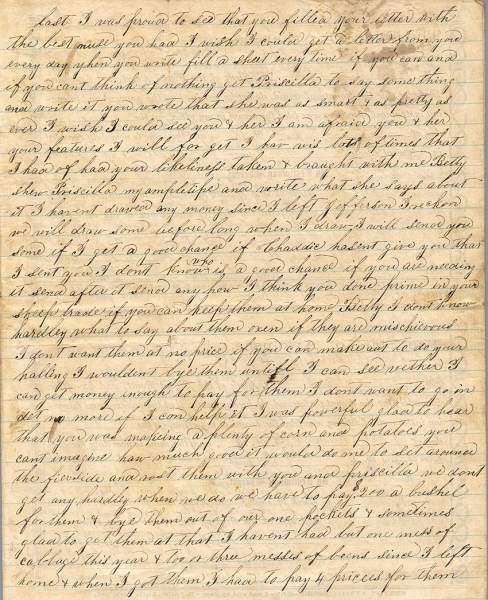 last I was proud to see that you filled your letter with
the best nuse you had I wish I could get a letter from you
every day when you write fill a sheet every time if you can and
if you cant think of nothing get Priscilla to say some thing
and write it you wrote that she was as smart & as pretty as
ever I wish I could see you & her I am afraid you & her
your features I will for get I hav wis lots of times that
I had of had your likeliness taken & braught with me Betty
shew Priscilla my ampletipe and write what she says about
it I havent drawed any money since I left Jefferson I reckon
we will draw some before long when I draw I will send you
some if I get a good chance if Chaddic hasent give you that
I sent you I dont know who is a good chance if you are needing
it send after it send any how I think you done prime in your
sheep trade if you can keep them at hom Betty I dont know
hardley what to say about them oxen if they are mischievous
I dont want them at no price if you can make out to do your
halling I wouldent bye them untill I can see wether I
can get money enough to pay for them I dont want to go in
det no more if I can help it I was powerful glad to hear
that you was making a plenty of corn and potatoes you
cant imagine how much good it would do me to set around
the fireside and rost them with you and priscilla we dont
get any hardly when we do we have to pay $200 a bushel
for them & bye them out of our one pockets & sometimes
glad to get them at that I havent had but one mess of
cabbage this year & too or three messes of beens since I left
home & when I got them I had to pay 4 pricces for them